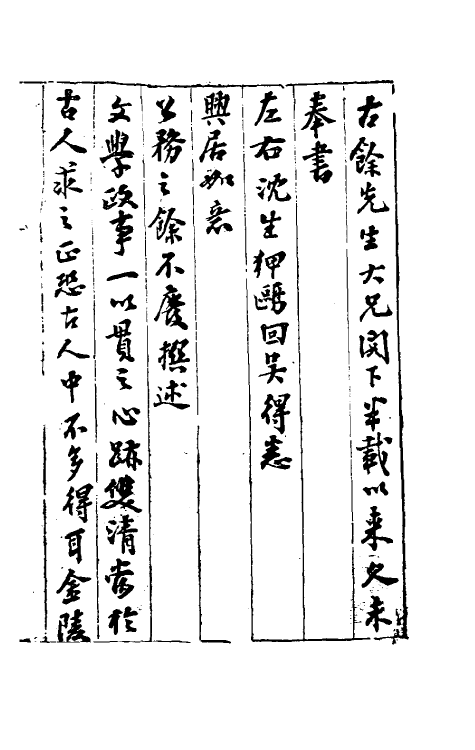 古餘先生大兄閣下半載以来久未
奉書
左右沈生狎鷗回吴得悉
興居
公務之餘不廢撰述
文學政事一以貫之心跡雙清常於
古人求之正恐古人中不多得耳金陵